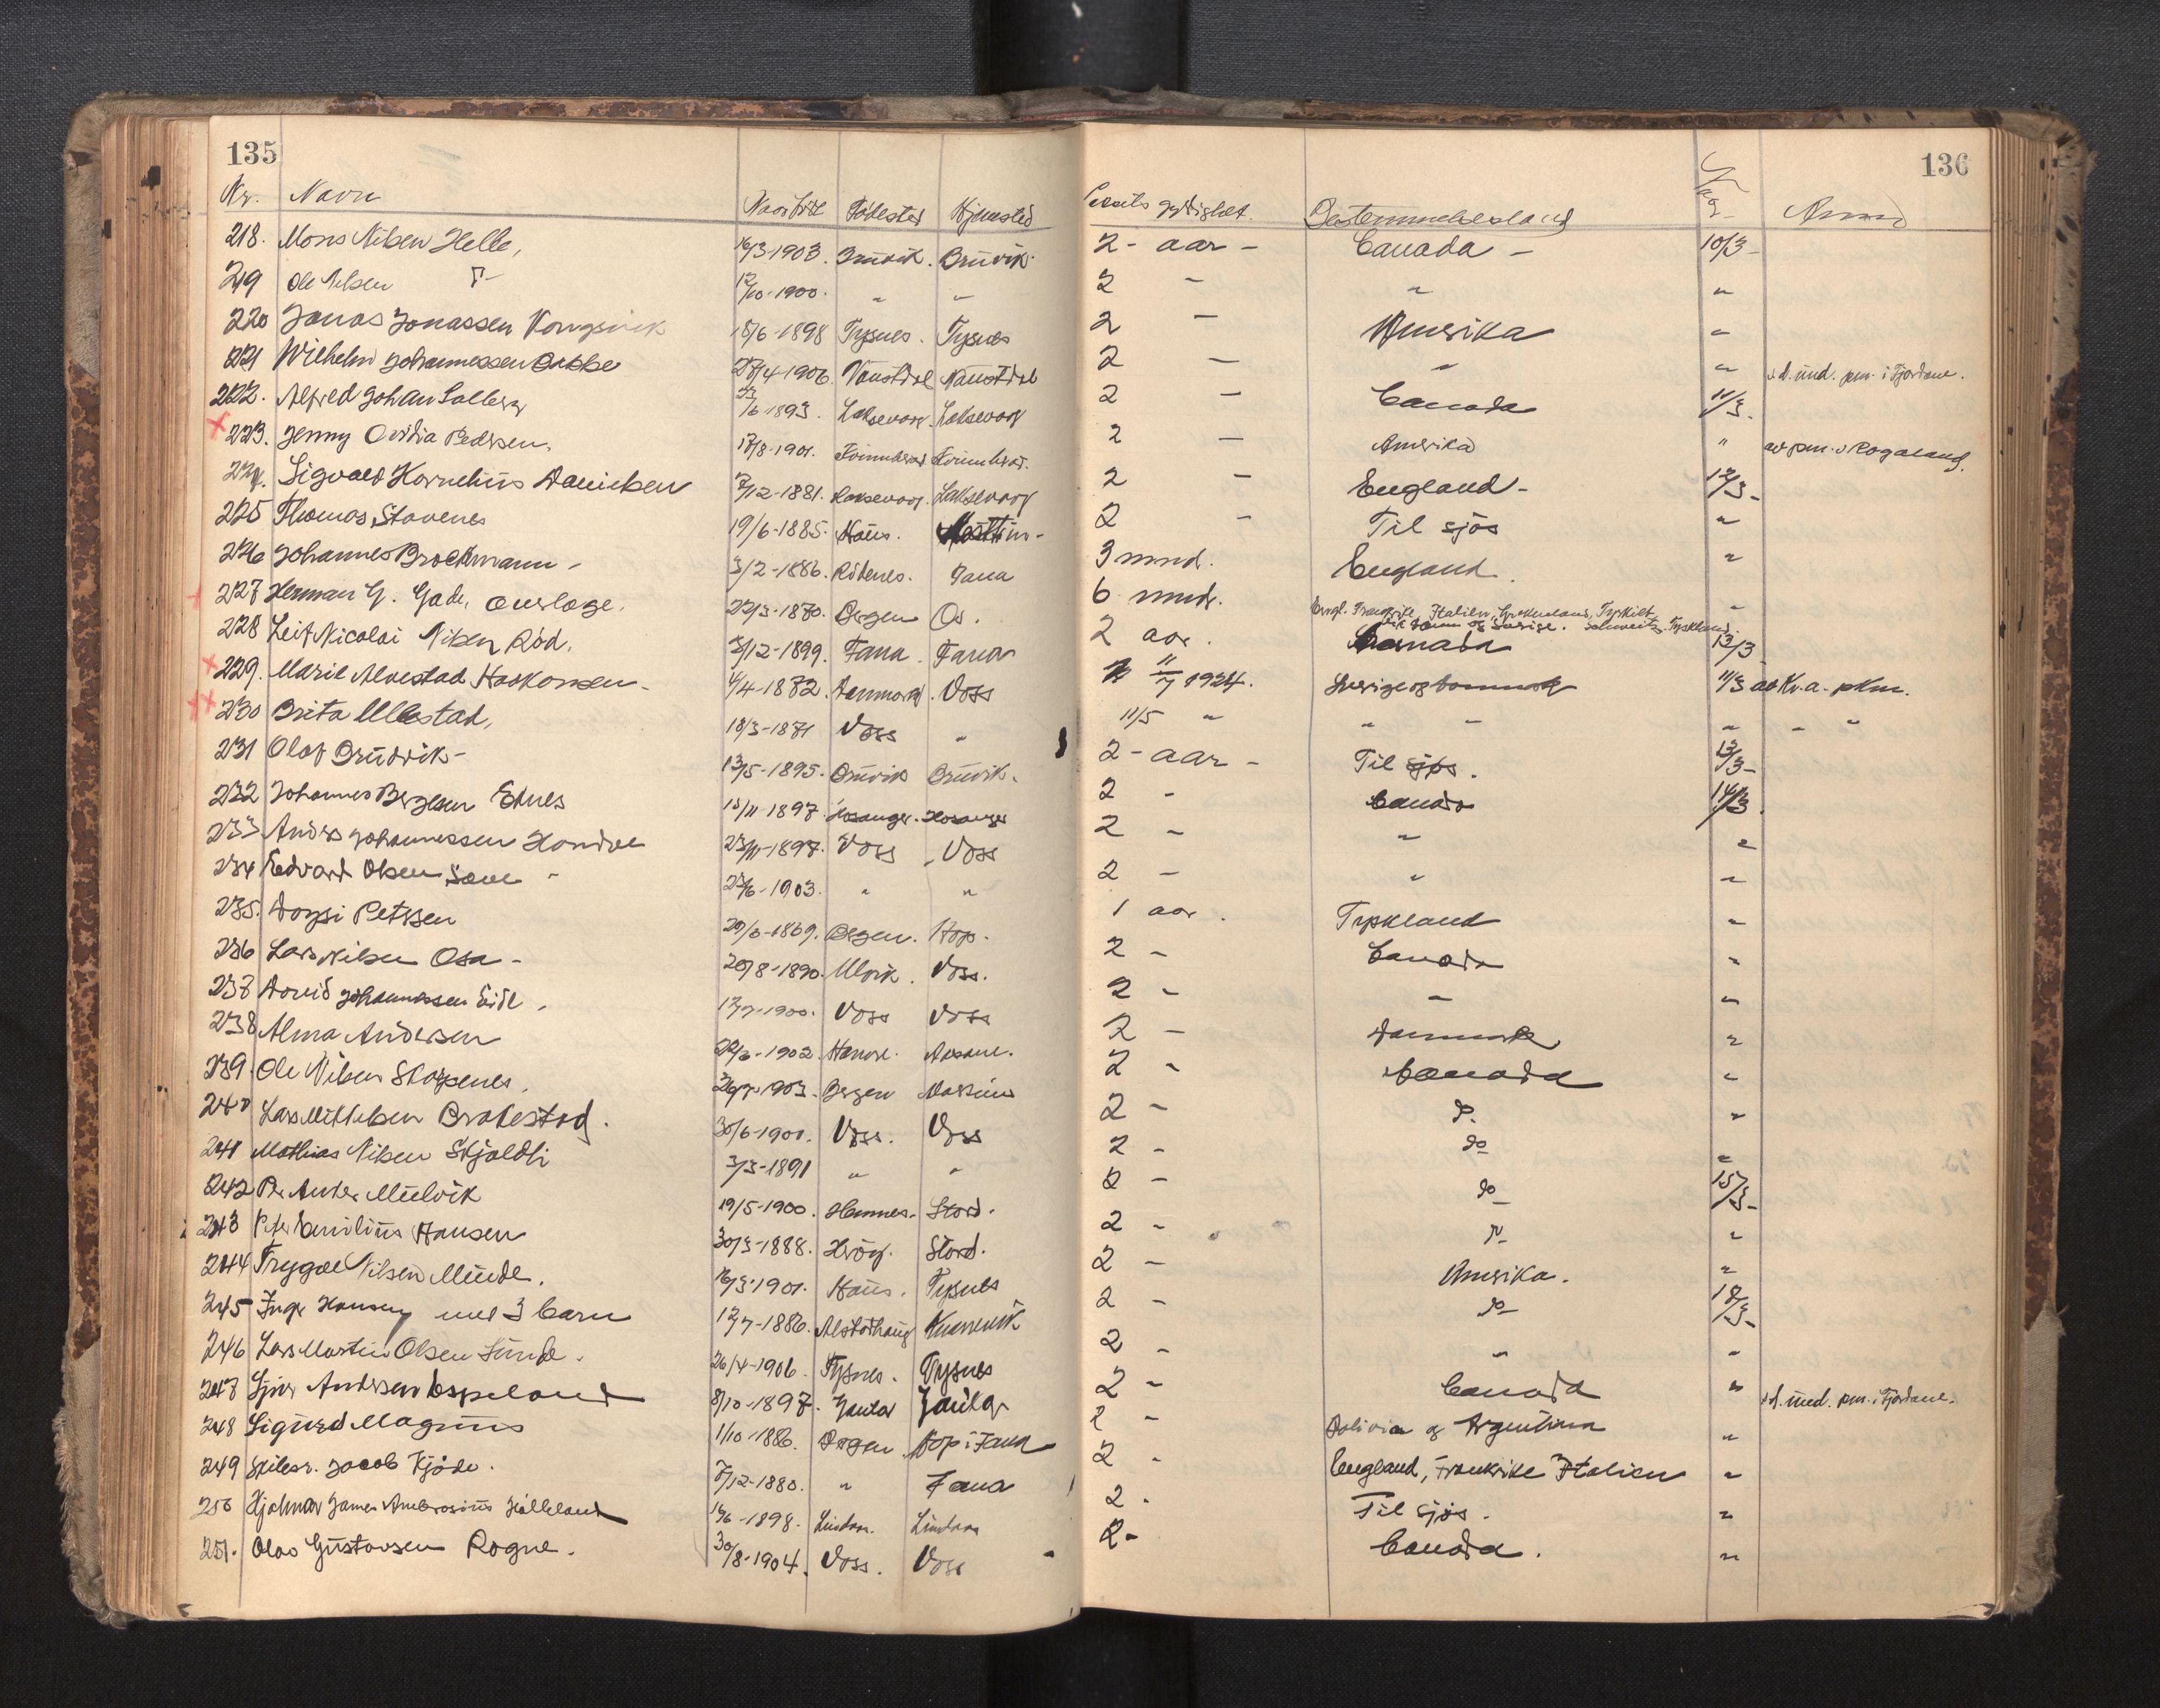 135
136
Nr. Navn Födested Hjemsted gyldighet. Bestemmelsesland
218. Mons Nilsen Helle, 16/3-1903. Bruvik. Bruvik. 2- aar - Canada - 10/3-
219 Ole Nilsen 12/10-1900. " " 2 - " "
220 Jonas Jonassen Vongsvik 18/6-1898 Tysnes. Tysnes 2 - Amerika "
221 Wilhelm Johannessen 1906. Naustdal Naustdal 2 - " " pm. i Fjordane.
222. Alfred Johan Solberg /6 1893. Laksevaag. Laksevaag 2 - Canada 11/3.
223. Jenny Ovidia Pedersen. /8-1901. 2 - Amerika " av pm. i Rogaland.
224. Sigvald Kornelius Danielsen 7/12-1881. Laksevaag. Laksevaag 2 - England - 12/3-
225 Thomas Stavenes 19/6-1885. Haus. 2 - Til sjös "
226 Johannes Brockmann - 3/2-1886. Rödenes. Fana 3 mnd. England. "
227 Herman G. Gade, 22/3-1870. Bergen Os. 6 mndr. Engl. Frankrike, Italien, Tyrkiet, og Sverige. Schweitz, Tyskland. "
228 Leif Nicolai Nilsen Röd. /12-1899. Fana. Fana 2 aar. Canada 13/3
229. Marie Alvestad Haakonsen - /4-1872. Danmark. Voss 11/7 1924. Sverige og Danmark 11/3 pkm.
230 Brita Ullestad, 18/3-1871 Voss " 11/5 " " " " - "
231 Olaf Bruvik - 13/5-1895. Bruvik Bruvik. 2-aar - Til sjös. 13/3-
232 Johannes Bergesen Eknes 15/11-1897. Hosanger. Hosanger 2 - Canada 14/3.
233 Anders Johannessen Hondve 23/11-1897. Voss. Voss 2 - " "
234 Edvard Olsen - 1903. " " 2 - " "
235. Petersen 1869. Bergen. Hop. 1 aar. Tyskland "
236 Lars Nilsen Osa - 20/8-1890. Ulvik. Voss. 2 - Canada "
237 David Johannessen Eide. 1900. Voss Voss 2 - " "
238 Alma Andersen 1902. Askøne. 2 - Danmark "
239. Ole Nilsen Skarpenes. 1903. Bergen 2 - Canada "
240 Lars Mikkelsen Brakestad. 30/6-1901. Voss. Voss 2 - do. "
241 Mathias Nilsen Skjeldli 3/3-1891 " " 2 - do "
242 Per Anders Mülvik 19/5-1900. Stord. 2 - do 15/3-
243 Peter Emilius Hansen 30/3-1888. Stord. 2 - do "
244 Trygve Nilsen Minde. 1901. Haus. Tysnes 2 - Amerika. "
245 Inga Hansen med 3 barn 12/7-1886. Alstahaug Kvannvik 2 - do 18/3-
246 Lars Martin Olsen Sunde. 26/4-1906. Tysnes. Tysnes 2 - " "
247 Andersen Espeland 8/10-1897. Jaular Jaular 2 - Canada " pm. i Fjordane.
248 Sigurd Magnus 1/10-1886. Bergen Hop i Fana 2 - Bolivia og Argentina "
249 Skibsr. Jacob Kjöde. /12-1880. " Fana 2 - England, Frankrike Italien "
250 Hjalmar James Ambrosius 1898. Lindaas. Lindaas 2 - Til sjös. "
251. Olav Gustavsen Rogne. 30/8-1904. Voss. Voss 2- Canada. "